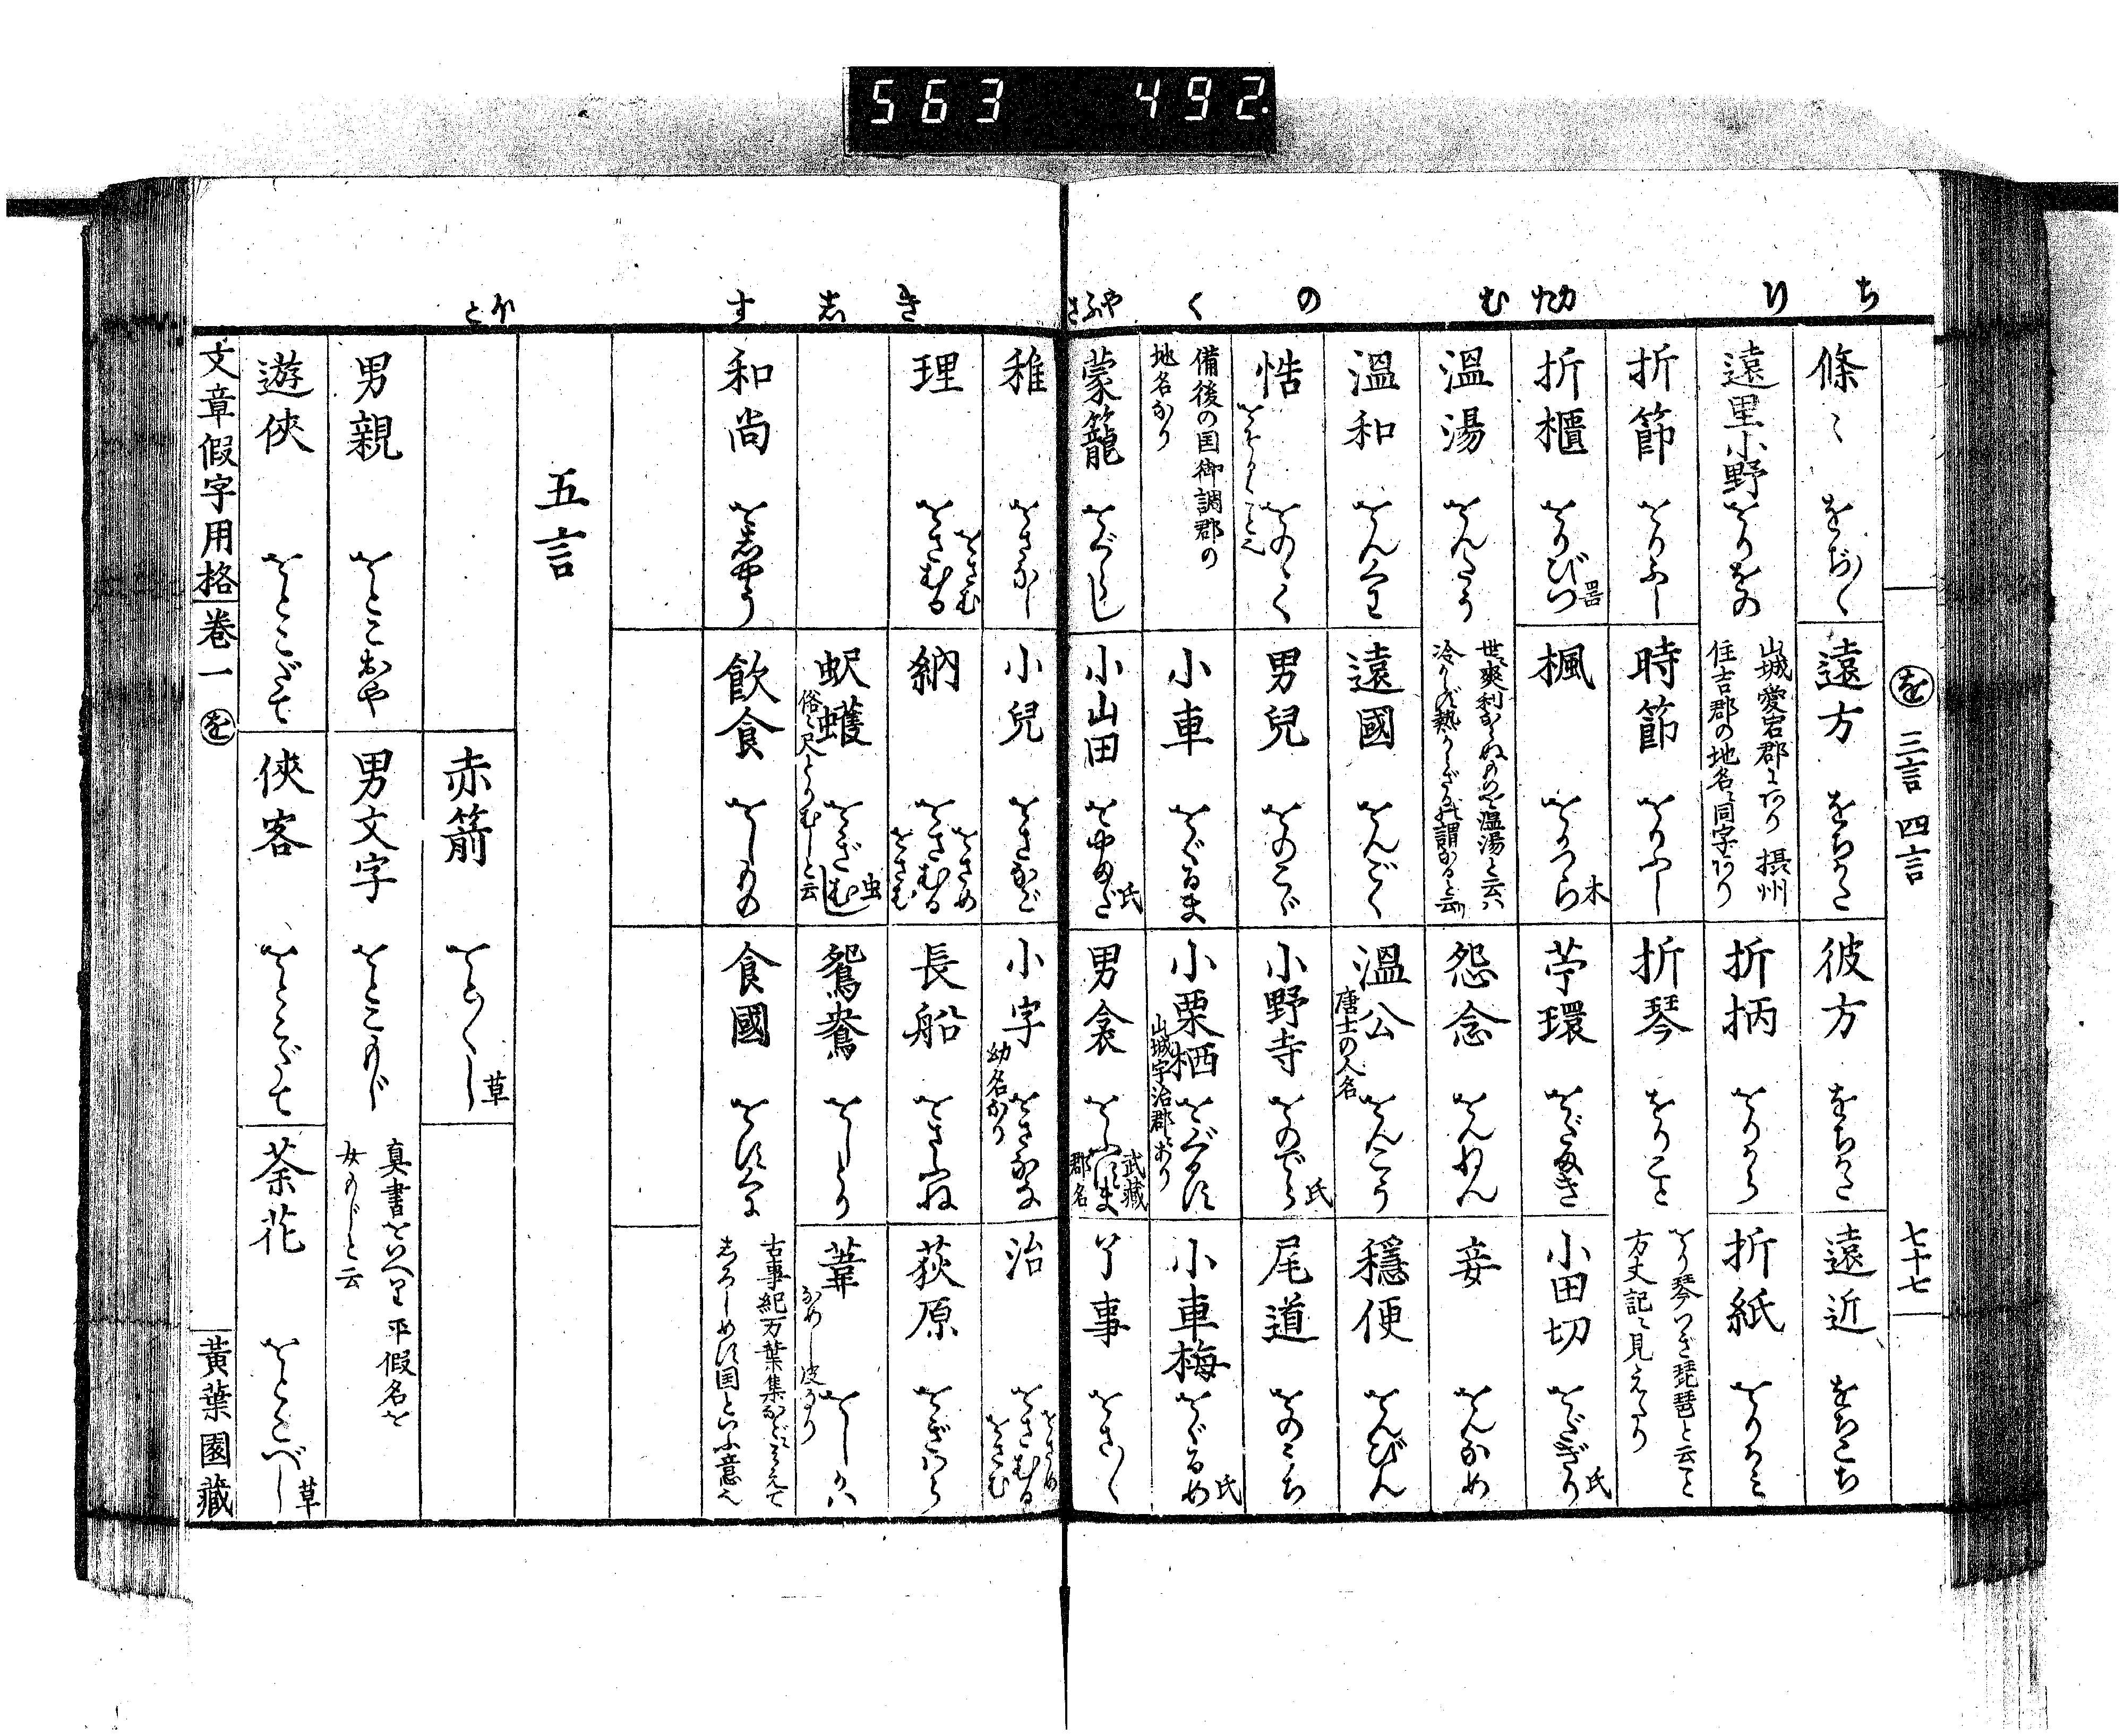 563 492.
ち
り
む
の
く
や
さ
を 三言 四言 七十七
條〻 をぢ〳〵
遠方 をちかた
彼方 をちかた
遠近 をちこち
遠里小野 をりをの
山城愛宕郡にあり 摂州
住吉郡の地名に同字あり
折柄 をりから
折紙 をりかみ
折節 をりふし
時節 をりふし
折琴 をりこと
をり琴つぎ琵琶と云こと
方丈記に見えたり
折櫃 をりびつ 器
楓 をかつら 木
苧環 をだまき
小田切 をだぎり 氏
溫湯 をんたう
怨念 をんねん
妾 をんなめ
溫和 をんくわ
遠國 をんごく
溫公 をんこう
唐士の人名
穩便 をんびん
悎 をのゝく
男兒 をのこゞ
小野寺 をのでら 氏
尾道 をのみち
備後の国御調郡の
地名なり
小車 をぐるま
小栗栖 をぐるす
山城宇治郡にあり
小車梅 をぐるめ 氏
蒙籠 をぐらし
小山田 をやまだ 氏
男衾 をふすま 武藏
郡名
丫事 をさ〳〵
き
し
す
ほ
と
稚 をさなし
小兒 をさなご
小字 をさな
幼名なり
治 をさむる をさめ
をさむ
理 をさむる をさむ
納 をさむる をさめ
をさむ
長船 をさふね
荻原 をぎはら
蚇蠖 をぎむし 虫
俗に尺とりむしと云
鴛鴦 をしどり
葦 をしかは
なめし皮なり
和尚 をしやう
飮食 をしもの
食國 をすくに
古事紀万葉集などにみえて
しろしめす国といふ意也
五言
赤箭 をとゝし 草
男親 をとこおや
男文字 をとこもじ
真書をいへり平假名を
女もじと云
遊俠 をとこだて
俠客 をとこだて
荼花 をとこべし 草
文章假字用格 卷一 を 黃葉園藏